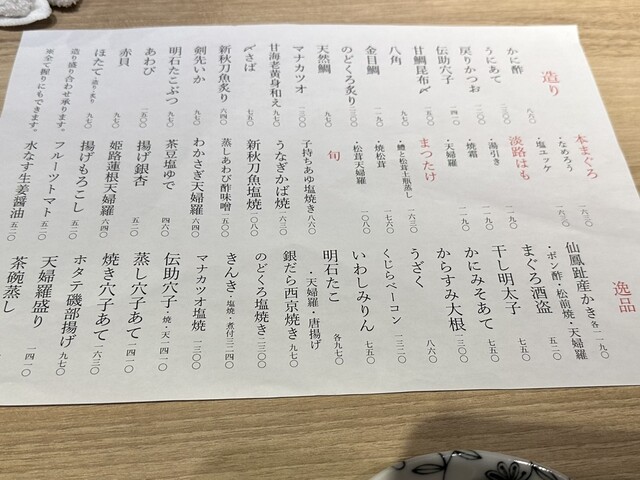 造り
かに酢 八六〇
うにあて 二三〇〇
戻りかつお 一二〇〇
伝助穴子 一四一〇
甘鯛昆布〆 九七〇
八角 一一九〇
金目鯛 一一九〇
のどくろ炙り 二三〇〇
天然鯛 九七〇
マナカツオ 一三〇〇
甘海老黄身和え 九七〇
〆さば 七五〇
新秋刀魚炙り 八四〇
剣先いか 九七〇
明石たこぶつ 九七〇
あわび 一五〇〇
赤貝
ほたて 九七〇
造り盛り合わせ承ります。
※全て握りにもできます。
本まぐろ
・なめろう 一六三〇
・塩ユッケ 一六三〇
淡路はも
・湯引き 一一九〇
・焼霜 一一九〇
・天婦羅
まつたけ
・鱧・松茸土瓶蒸し 一六三〇
・焼松茸 一七六〇
・松茸天婦羅 一〇八〇
旬
子持ちあゆ塩焼き 八六〇
うなぎかば焼 一六二〇
新秋刀魚塩焼 一〇八〇
蒸しあわび酢味噌 一五〇〇
わかさぎ天婦羅 六四〇
茶豆塩ゆで 四六〇
揚げ銀杏 五二〇
姫路蓮根天婦羅 六四〇
揚げもろこし 五二〇
フルーツトマト 五二〇
水なす生姜醤油 五二〇
逸品
仙鳳趾産かき 各一一九〇
・ポン酢・松前焼・天婦羅
まぐろ酒盗 五二〇
干し明太子 七五〇
かにみそあて 七五〇
からすみ大根 一三〇〇
うざく 八六〇
くじらベーコン 一三二〇
いわしみりん 七五〇
明石たこ 各九七〇
・天婦羅・唐揚げ
銀だら西京焼き 九七〇
のどくろ塩焼き 二三〇〇
きんき・塩焼・煮付 三二四〇
マナカツオ塩焼 一三〇〇
伝助穴子 焼・天 一四一〇
蒸し穴子あて 一四一〇
焼き穴子あて 一六三〇
ホタテ磯部揚げ 九七〇
天婦羅盛り 一四一〇
茶碗蒸し